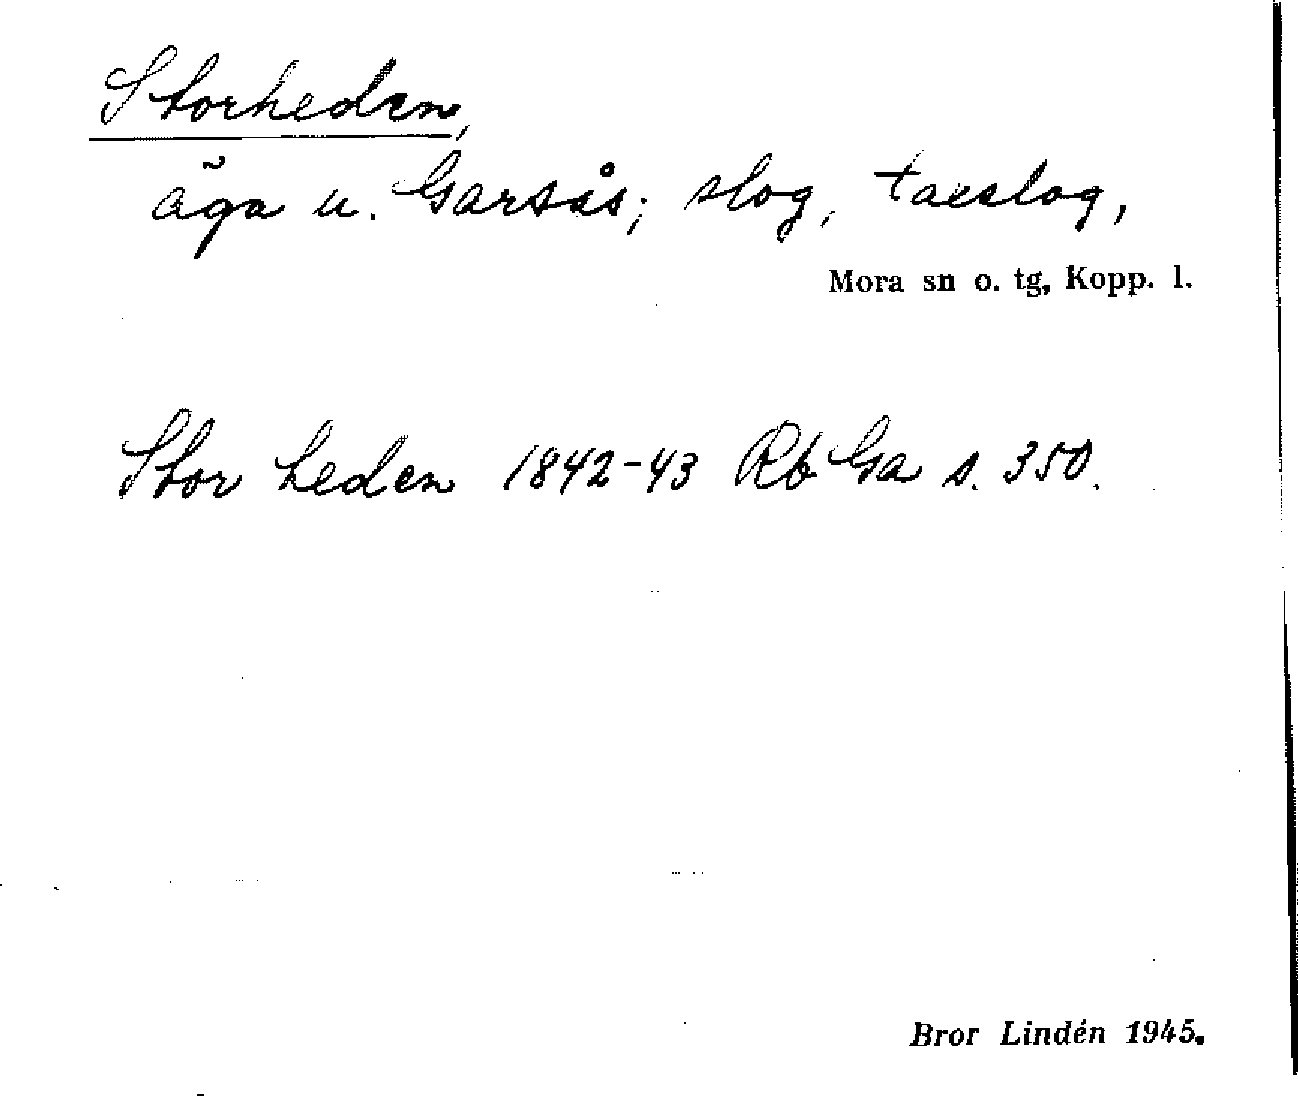 Storheden,
äga u. Garsås; slog, taeslog,
Mora sn o. tg, Kopp. l.
Stor heden 1842-43 Rb Ga s. 350.
Bror Lindén 1945.